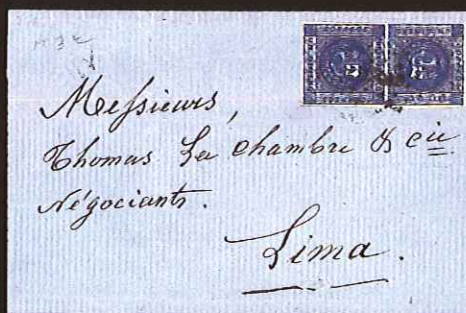 Messieurs,
Thomas La Chambre & cie
Négociants.
Lima.